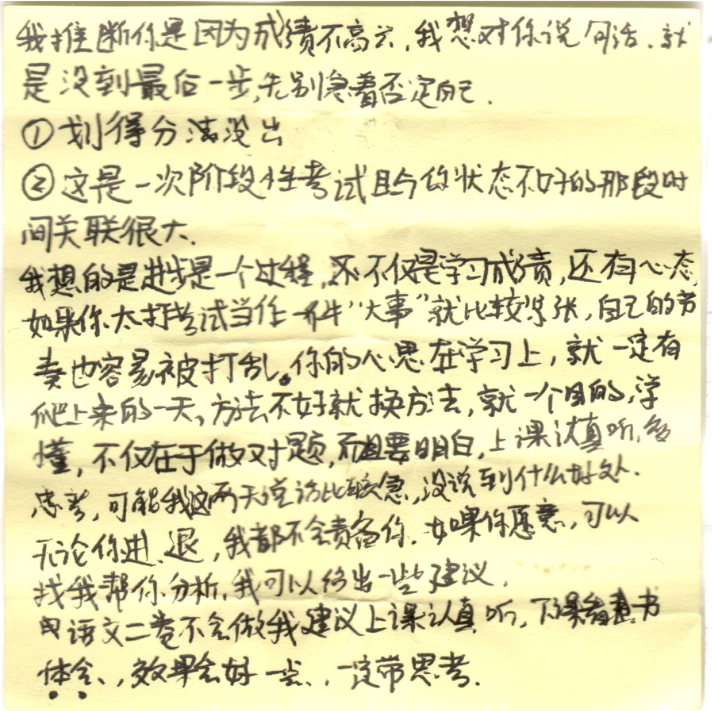 我推断你是因为成绩不高兴,我想对你说句话,就
是没到最后一步,先别急着否定自己.
①划得分法没出
②这是一次阶段性考试且与你状态不好的那段时
间关联很大.
我想的是进步是一个过程,还不仅是学习成绩,还有心态,
如果你太把考试当作一件“大事”就比较紧张,自己的节
奏也容易被打乱。你的心思在学习上,就一定有
爬上来的一天,方法不好就换方法,就一个目的,学
懂,不仅在于做对题,而且要明白,上课认真听,多
思考,可能我这两天说话比较急,没说到什么好处.
无论你进、退,我都不会责备你.如果你愿意,可以
找我帮你分析,我可以给出一些建议.
语文二卷不会做我建议上课认真听,下课看书
体会,效果会好一点,一定带思考.